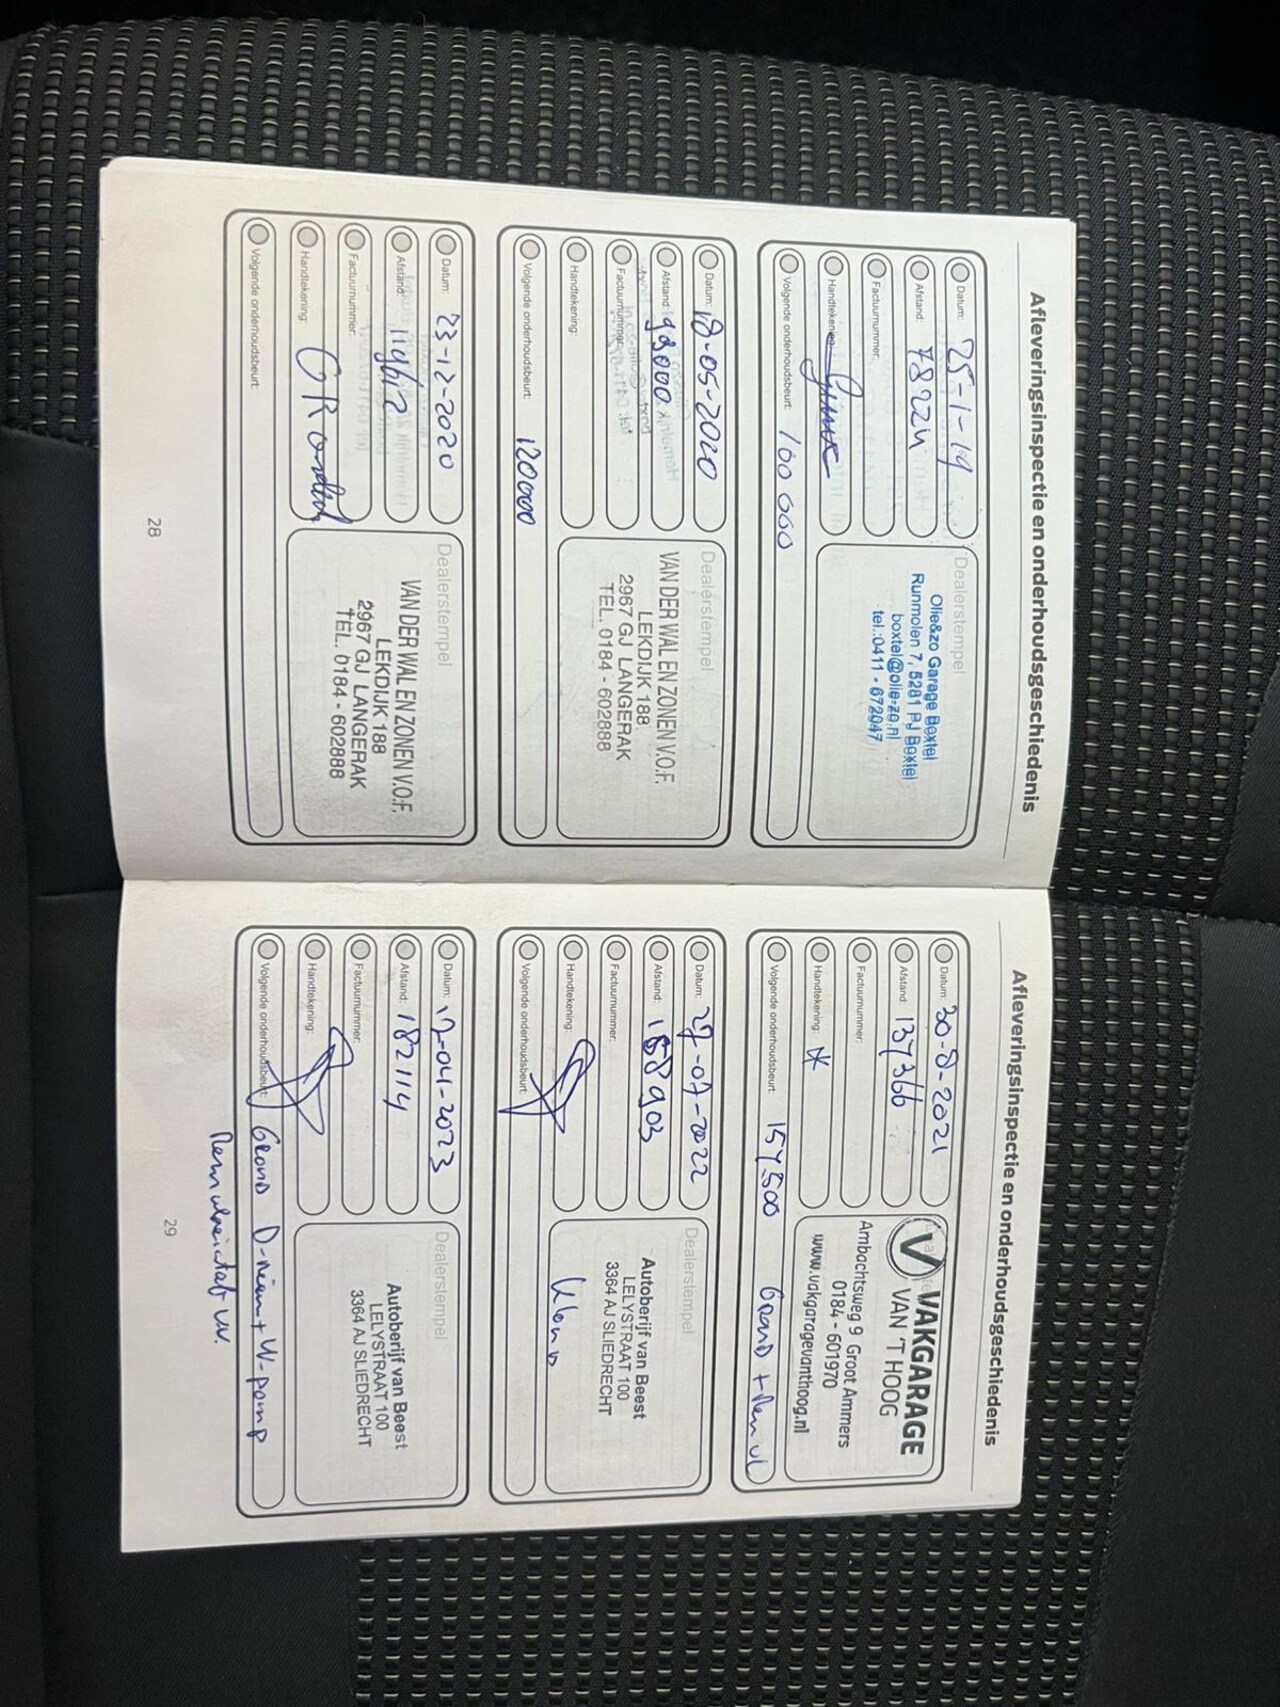 Afleveringsinspectie en onderhoudsgeschiedenis
Datum: 25-1-19
Afstand: 78224
Factuurnummer:
Handtekening:
Volgende onderhoudsbeurt: 100 000
Dealerstempel
Olie&zo Garage Boxtel
Runmolen 7, 5281 PJ Boxtel
boxtel@olie-zo.nl
tel.:0411 - 672047
Datum: 18-05-2020
Afstand: 99000
Factuurnummer:
Handtekening:
Volgende onderhoudsbeurt: 120000
Dealerstempel
VAN DER WAL EN ZONEN V.O.F.
LEKDIJK 188
2967 GJ LANGERAK
TEL. 0184 - 602888
Datum: 23-12-2020
Afstand:
Factuurnummer:
Handtekening:
Volgende onderhoudsbeurt:
Dealerstempel
VAN DER WAL EN ZONEN V.O.F.
LEKDIJK 188
2967 GJ LANGERAK
TEL. 0184 - 602888
28
Afleveringsinspectie en onderhoudsgeschiedenis
Datum: 30-8-2021
Afstand: 137366
Factuurnummer:
Handtekening:
Volgende onderhoudsbeurt: 157500 Grond +
VAKGARAGE
VAN 'T HOOG
Ambachtsweg 9 Groot Ammers
0184 - 601970
www.vakgaragevanthoog.nl
Datum: 27-07-2022
Afstand: 158903
Factuurnummer:
Handtekening:
Volgende onderhoudsbeurt:
Dealerstempel
Autoberijf van Beest
LELYSTRAAT 100
3364 AJ SLIEDRECHT
Datum: 17-04-2023
Afstand: 182114
Factuurnummer:
Handtekening:
Volgende onderhoudsbeurt: Grond D-riem + W-pomp
Dealerstempel
Autoberijf van Beest
LELYSTRAAT 100
3364 AJ SLIEDRECHT
29